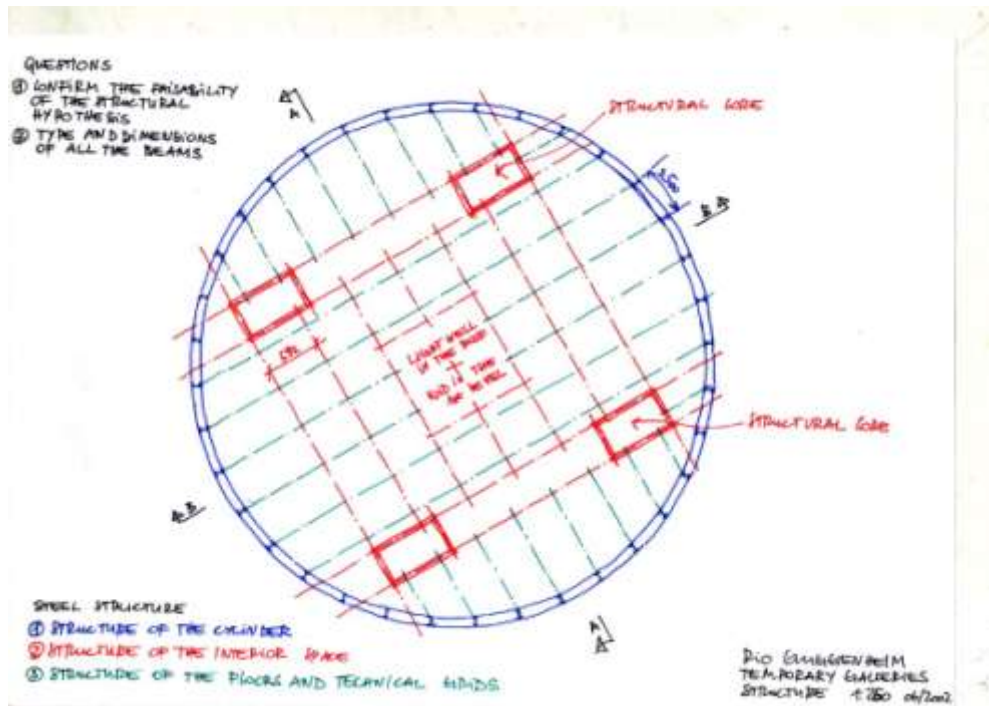 QUESTIONS
① CONFIRM THE FAISABILITY
OF THE STRUCTURAL
HYPOTHESIS
② TYPE AND DIMENSIONS
OF ALL THE BEAMS
A
STRUCTURAL CORE
3.500
B B
LIGHT WELL
IN THE ROOF
+
AND IN THE
STRUCTURAL CORE
A B
A
STEEL STRUCTURE
① STRUCTURE OF THE CYLINDER
② STRUCTURE OF THE INTERIOR SPACE
③ STRUCTURE OF THE FLOORS AND TECHNICAL GRIDS
RIO GUGGENHEIM
TEMPORARY GALLERIES
STRUCTURE 1:250 06/2002